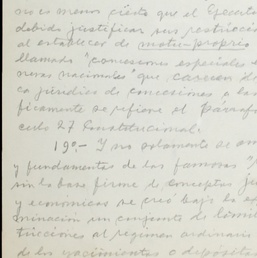 no es menos cierto que el Ejecut
debido justificar sus restricció
al establecer de motu-proprio
llamado "concesiones especiales o
reservas nacionales" que carecen de
ca jurídica de concesiones a las
ficamente se refiere el Párrafo
culo 27 Constitucional.
19º.- Y no solamente se am
y fundamentos de las famosas "
sin la base firme de conceptos ju
y económicos se creó bajo la
minación un conjunto de limi
tricciones al régimen ordinario
de los yacimientos o depósitos